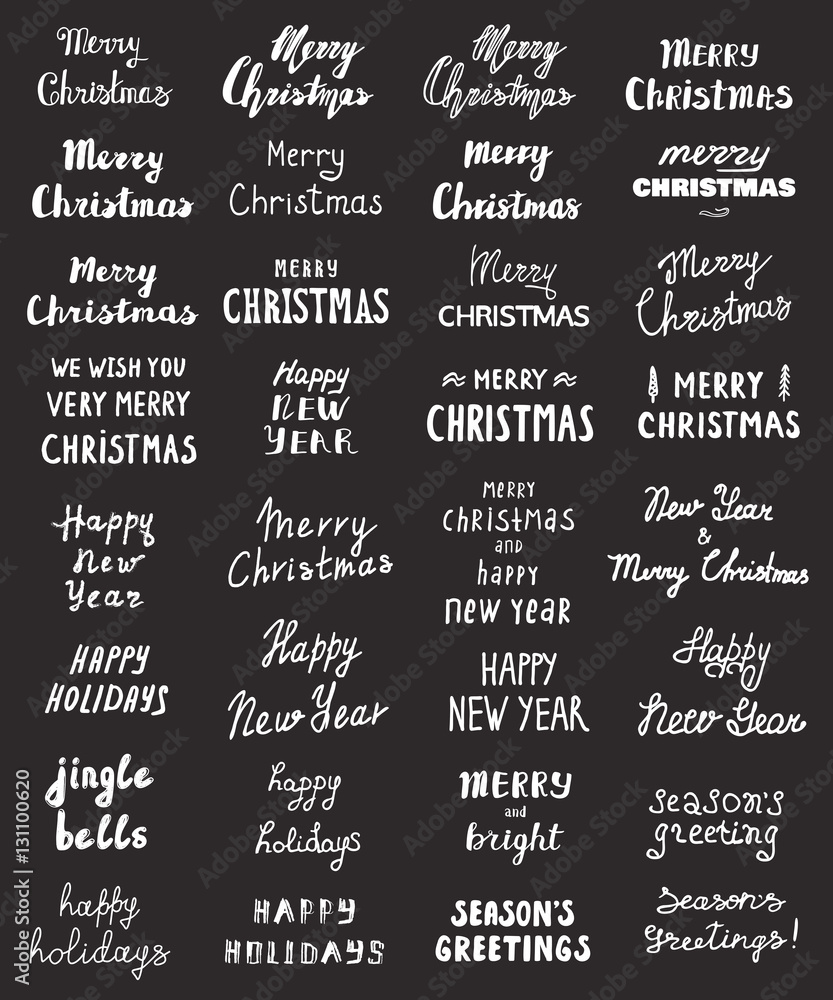 Merry
Christmas
Merry
Christmas
Merry
Christmas
MERRY
CHRiSTMAS
Merry
Christmas
Merry
Christmas
Merry
Christmas
merry
CHRISTMAS
Merry
Christmas
MERRY
CHRISTMAS
Merry
CHRISTMAS
Merry
Christmas
WE WISH YOU
VERY MERRY
CHRiSTMAS
Happy
NEW
YEAR
≈ MERRY ≈
CHRISTMAS
MERRY
CHRISTMAS
Happy
New
Year
Merry
Christmas
merry
christmas
and
happy
new year
New Year
&
Merry Christmas
HAPPY
HOLiDAYS
Happy
New Year
HAPPY
NEW YEAR
Happy
New Year
jingle
bells
happy
holidays
MERRY
and
bright
season's
greeting
happy
holidays
HAPPY
HOLIDAYS
SEASON'S
GREETINGS
Season's
greetings!
Adobe Stock | #131100620